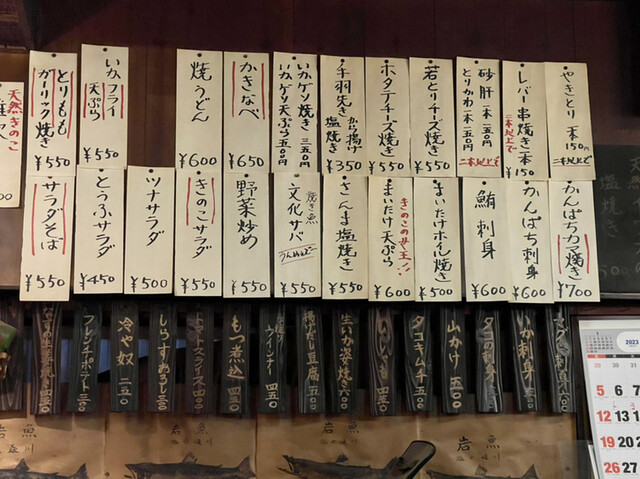 やきとり 一本 150円 二本以上で
レバー串焼き 一本 ¥150 二本以上で
砂肝 一本 一五〇円
とりかわ 一本 一五〇円 二本以上で
若とりチーズ焼き ¥550
ホタテチーズ焼き ¥550
手羽先 から揚げ 塩焼き ¥350
いかゲソ焼き 三五〇円
いかゲソ天ぷら 五五〇円
かきなべ ¥650
焼うどん ¥600
いかフライ 天ぷら ¥550
とりもも ガーリック焼き ¥550
天然きのこ
かんぱちカマ焼き ¥700
かんぱち刺身 ¥600
鮪刺身 ¥600
まいたけホイル焼き ¥500
きのこの女王!! まいたけ天ぷら ¥600
さんま塩焼き ¥550
焼き魚 文化サバ ¥550
野菜炒め ¥550
きのこサラダ ¥550
ツナサラダ ¥500
とうふサラダ ¥450
サラダそば ¥550
塩焼き
いか刺身 五五〇
タコ刺身
山かけ 五〇〇
タコキムチ 五五〇
生いか姿焼き 六五〇
揚げだし豆腐
ウインナー 四五〇
もつ煮込 四五〇
トマトスライス 四五〇
しらすおろし 三五〇
冷や奴 二五〇
フレンチポテト 三五〇
岩魚
岩魚
岩魚
2023
5 6 7
12 13 14
19 20
26 27